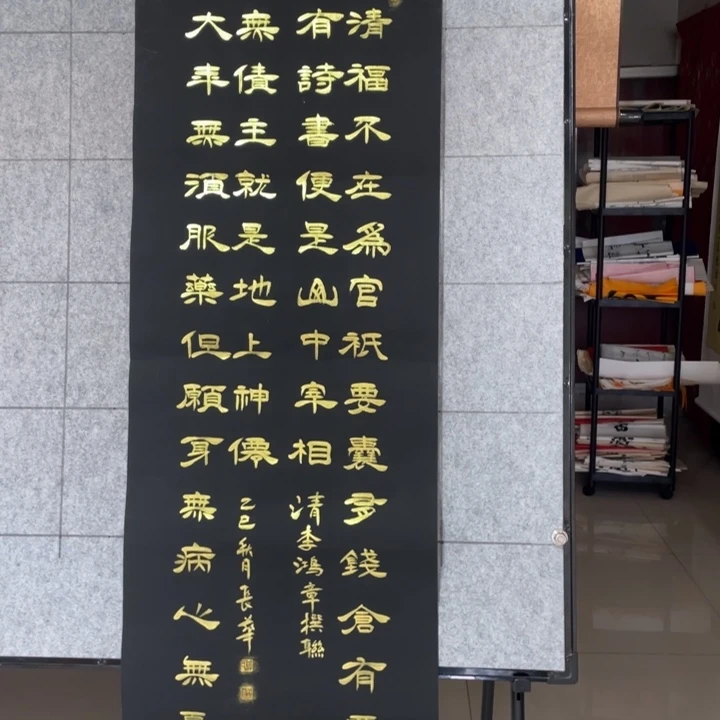 清福不在為官祇要囊多錢倉有
有詩書便是山中宰相
清李鴻章撰聯
大年無須服藥但願身無病心無
無債主就是地上神僊
乙巳秋月長華